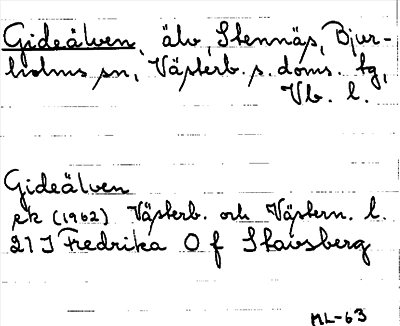 Gideälven, älv, Stennäs, Bjur-
holms sn, Västerb. s. doms. tg,
Vb. l.
Gideälven
ek (1962) Västerb. och Västern. l.
21 I Fredrika O f Stavsberg
ML-63